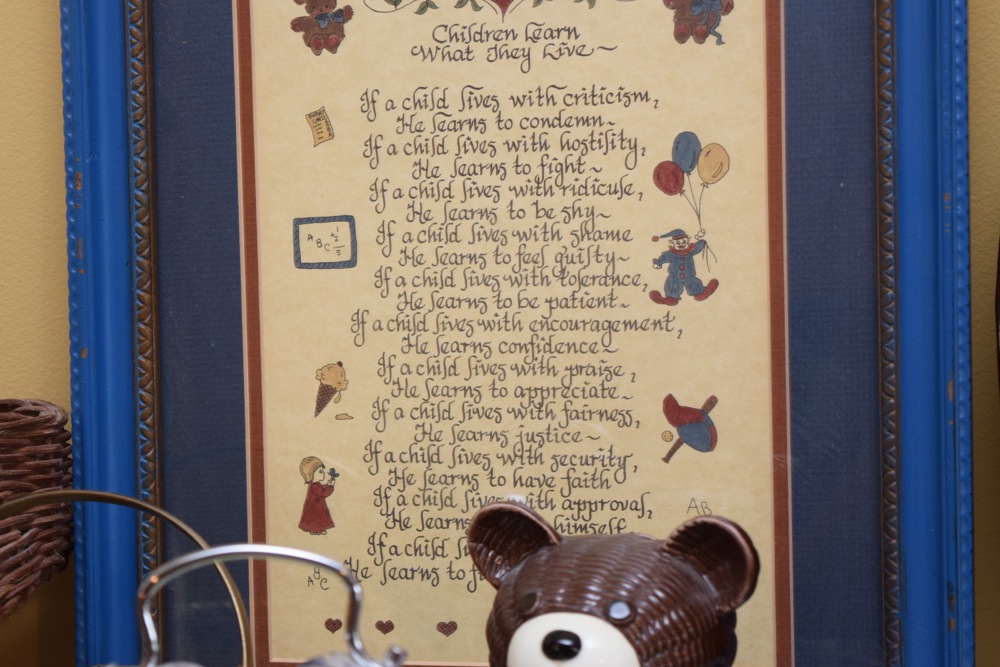 Children Learn
What They Live~
If a child lives with criticism,
He learns to condemn~
If a child lives with hostility,
He learns to fight~
If a child lives with ridicule,
He learns to be shy~
If a child lives with shame
He learns to feel guilty~
If a child lives with tolerance,
He learns to be patient~
If a child lives with encouragement,
He learns confidence~
If a child lives with praise,
He learns to appreciate~
If a child lives with fairness,
He learns justice~
If a child lives with security,
He learns to have faith
If a child lives with approval,
He learns himself
If a child
He learns to
ABC
AB
ABC